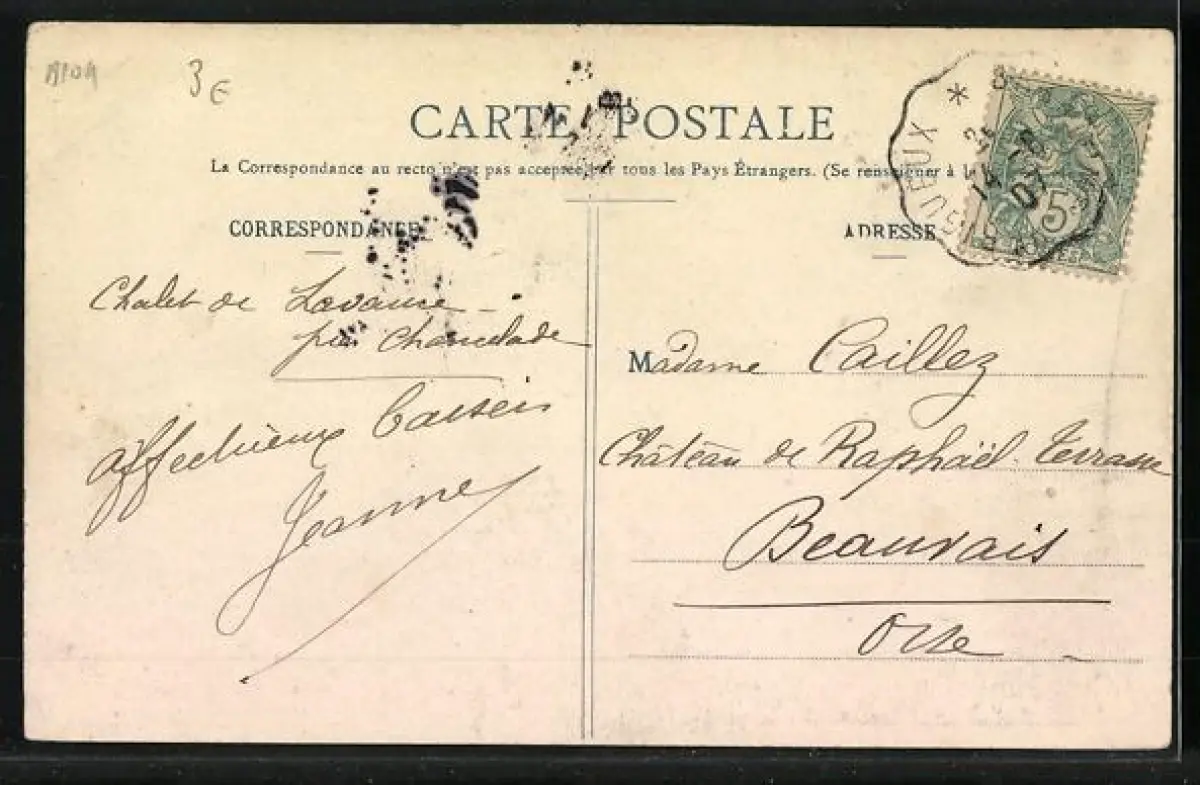 3 €
CARTE POSTALE
La Correspondance au recto n'est pas acceptée par tous les Pays Étrangers. (Se renseigner à la
CORRESPONDANCE
ADRESSE
Chalet de
par Chancelade
affectueux baisers
Jeanne
Madame Caillez
Château de Raphaël Terrasse
Beauvais
Oise
14
07
5